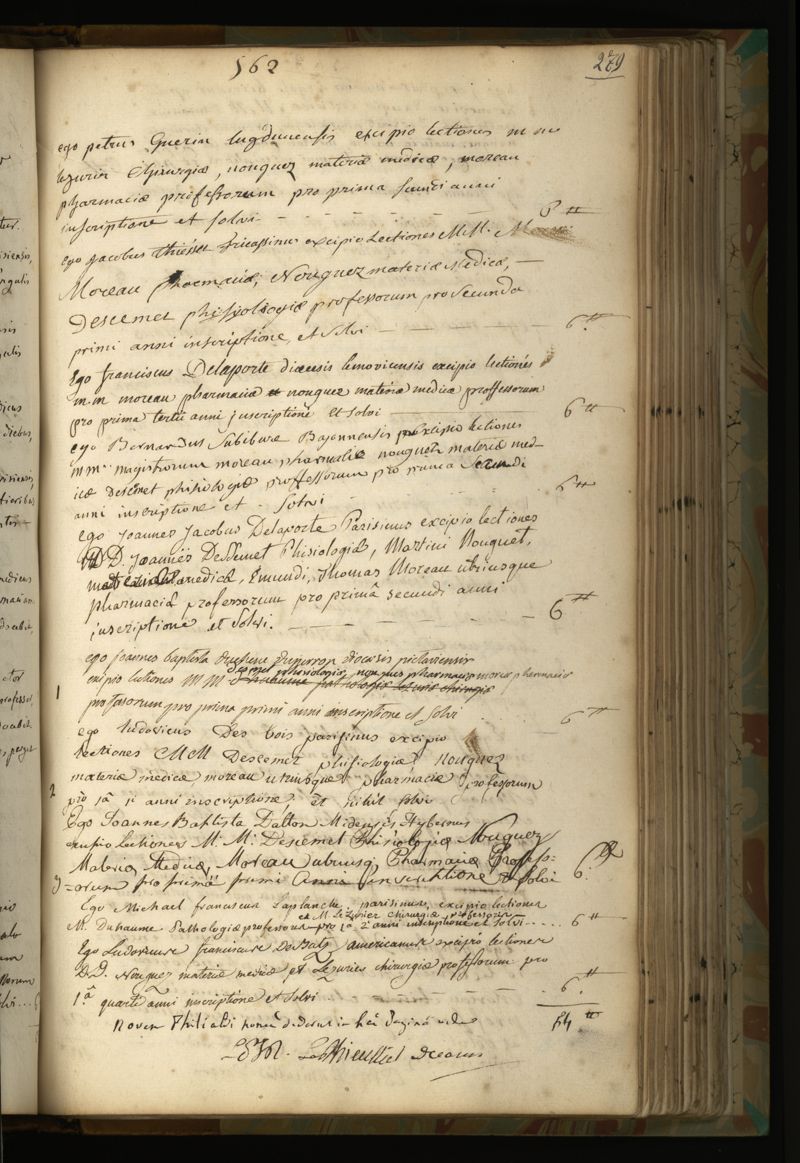 562
279
ego petrus Guerin lugdunensis excipio lectiones m m
lezurier Chirurgiæ, nouguez materiæ medicæ, moreau
pharmaciæ professorum pro prima secundi anni
inscriptione et solvi - - - - - - 6 ₶
ego jacobus thiesset tricassinus excipio Lectiones M.M.
Moreau Pharmaciæ, Nouguez materiæ Medicæ, —
Descemet phisiologiæ professorum pro Secunda
primi anni inscriptione, et Solvi — — — — 6 ₶.
Ego franciscus Delaporte diœcesis lemovicensis excipio lectiones
m.m moreau pharmaciæ et nouguez materiæ medicæ proffessorum
pro prima tertii anni juscriptione et solvi — 6 ₶
ego Bernardus Subibure Bajonnensis excipio lectiones
mm. magistrorum moreau pharmaciæ nouguez materiæ med-
icæ desemet phisiologiæ proffessorum pro prima Secundi
anni inscriptione et solvi - - - 6 ₶
ego joannes jacobus Delaporte Parisinus excipio lectiones
D.D. joannis DesSemet Phisiologiæ, Martini Nouguet,
materiæ medicæ, Emundi, Thomas Moreau utriusque
pharmaciæ professorum pro primâ secundi anni
juscriptione et solvi. — — — — — 6 ₶
ego joannes baptista duchene diocesis pictaviensis
excipio lectiones M M descemet phisiologiæ, nouguez pharmaciæ moreau pharmaciæ
1 professorum pro prima primi anni inscriptione et solvi — 6 ₶
ego ludovicus Des bois parisinus excipio
lectiones M M Descemet phisiologiæ, nouguez
materiæ medicæ, moreau utriusque pharmaciæ professorum
2 pro 1â 1i anni inscriptione, et nihil solvi
Ego Joannes Baptista Dalton Midensis Hybernus
excipio Lectiones M. M. Descemet Phisiologiæ Nouguez
Materiæ Medicæ, Moreau utriusq. Pharmaciæ Profess:
3 =orum pro primâ primi Anni Inscriptione et Solvi 6. ₶
Ego Michael franciscus Laplanche, parisinus, excipio lectiones
et M. Lezurier chirurgiæ professorum
M. Duhaume Pathologiæ professorum pro 1â 2i anni inscriptione et solvi ..... 6 ₶
Ego Ludovicus franciscus americanus excipio lectiones
D.D. Nouguez materiæ medicæ et Lezuries chirurgiæ professorum pro
1.â quarti anni inscriptione et solvi — — — — 6. ₶
Novem Philiatri nomen dederunt in hâc paginâ 54 ₶
Le Thieullier decanus